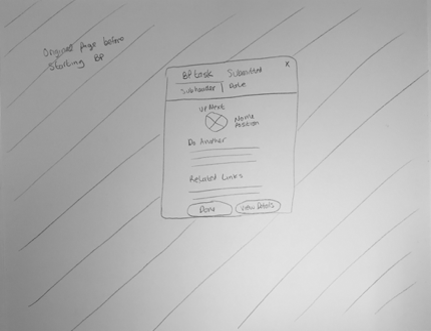 Original page before
starting BP
BP task Submitted x
Subheader | Date
Update
Name
Position
Do Another
Related Links
Done
View Details